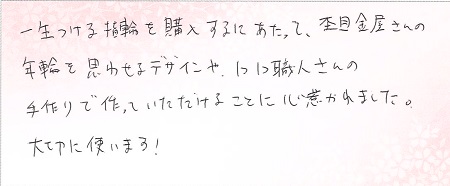 一生つける指輪を購入するにあたって、杢目金屋さんの
年輪を思わせるデザインや、1コ1コ職人さんの
手作りで作っていただけることに心惹かれました。
大切に使います!